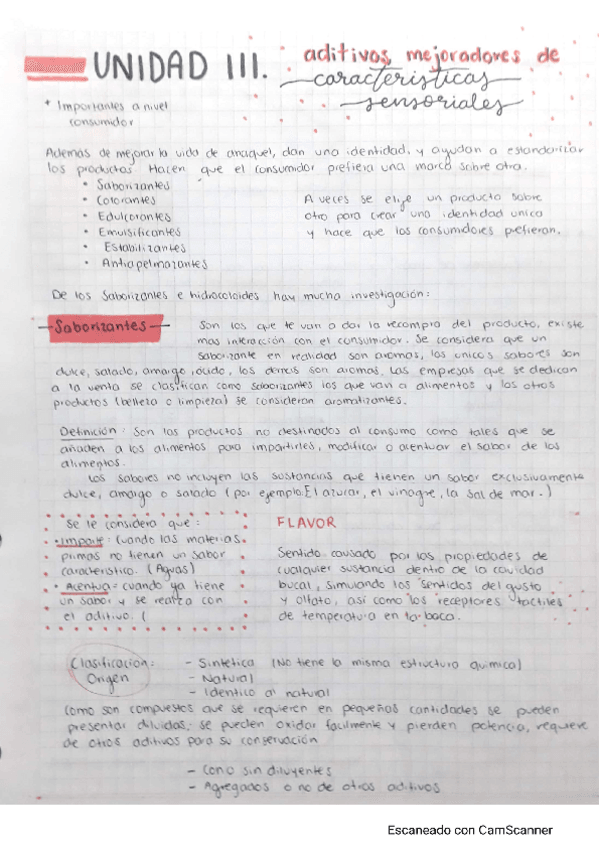 UNIDAD III. aditivos mejoradores de
características
sensoriales
* Importantes a nivel
consumidor
Además de mejorar la vida de anaquel, dan una identidad, y ayudan a estandarizar
los productos. Hacen que el consumidor prefiera una marca sobre otra.
• Saborizantes
• Colorantes
• Edulcorantes
• Emulsificantes
• Estabilizantes
• Antiapelmazantes
A veces se elige un producto sobre
otro para crear una identidad unica
y hace que los consumidores prefieran.
De los Saborizantes e hidrocoloides hay mucha investigación:
Saborizantes
Son los que te van a dar la recompra del producto, existe
mas interacción con el consumidor. Se considera que un
saborizante en realidad son aromas, los unicos sabores son
dulce, salado, amargo, ácido, los demás son aromas. Las empresas que se dedican
a la venta se clasifican como saborizantes los que van a alimentos y los otros
productos (belleza o limpieza) se consideran aromatizantes.
Definición: Son los productos no destinados al consumo como tales que se
añaden a los alimentos para impartirles, modificar o acentuar el sabor de los
alimentos.
Los sabores no incluyen las sustancias que tienen un sabor exclusivamente
dulce, amargo o salado (por ejemplo: El azucar, el vinagre, la sal de mar.)
Se le considera que:
• Imparte: Cuando las materias
primas no tienen un sabor
característico. (Aguas)
• Acentua: cuando ya tiene
un sabor y se realza con
el aditivo. (
FLAVOR
Sentido causado por los propiedades de
cualquier sustancia dentro de la cavidad
bucal, simulando los sentidos del gusto
y olfato, así como los receptores tactiles
de temperatura en la boca.
Clasificacion:
Origen
- Sintetica (No tiene la misma estructura quimica)
- Natural
- Identico al natural
Como son compuestos que se requieren en pequeños cantidades se pueden
presentar diluidas; se pueden oxidar facilmente y pierden potencia, requiere
de otros aditivos para su conservación
- Con o sin diluyentes
- Agregados o no de otros aditivos
Escaneado con CamScanner